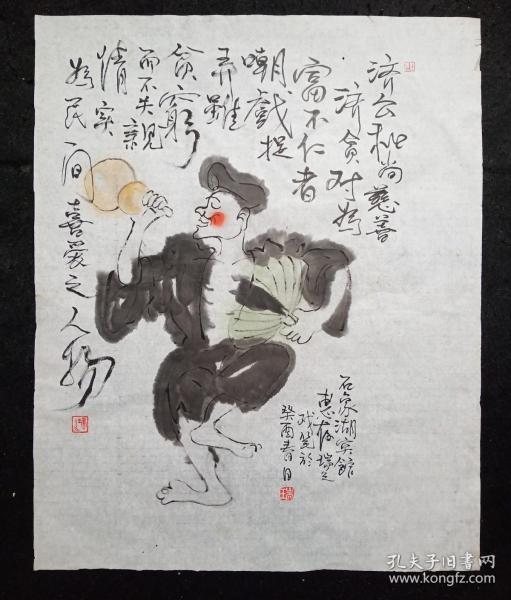 济公和尚慈善
济贫对为
富不仁者
嘲戏捉
弄虽
贫穷
而不失见亲
情实
为民间喜爱之人物
石象湖宾馆
惠存瑞之
戏笔於
癸酉春日
孔夫子旧书网
www.kongfz.com